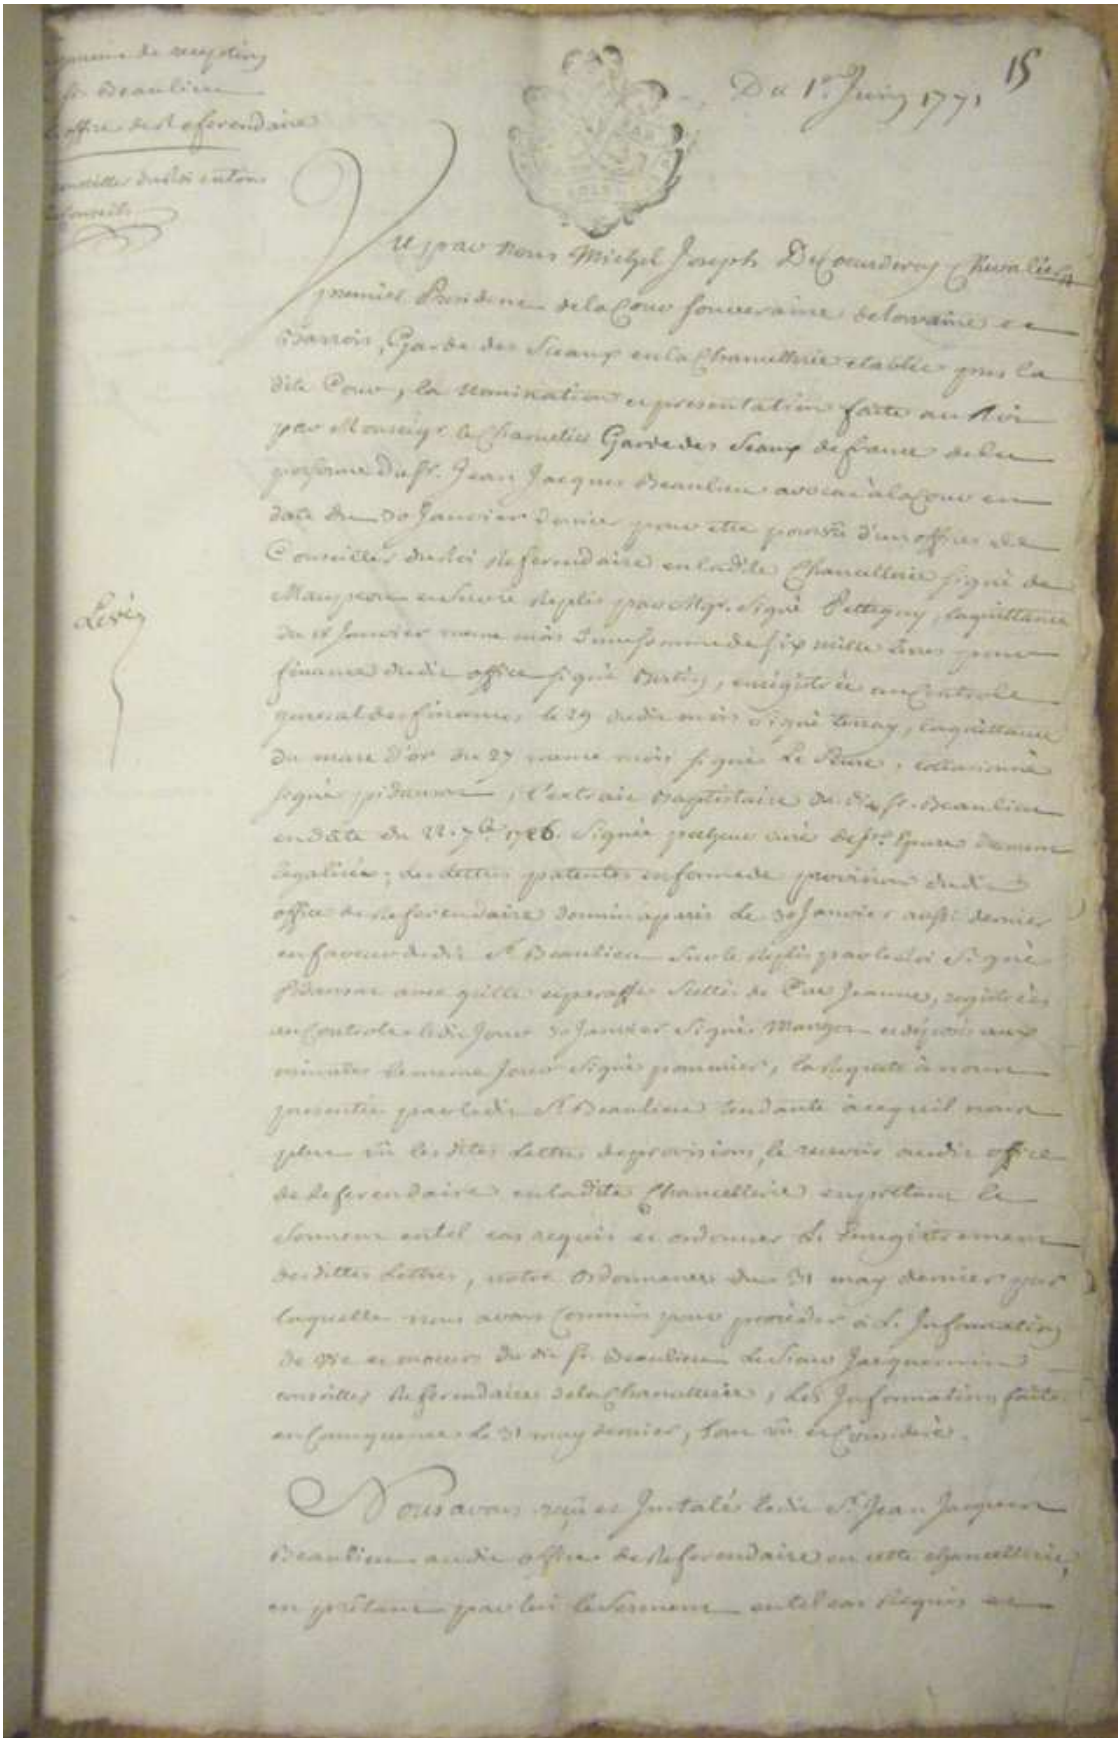 de reception
Sr. Beaulieu
office de Referendaire
Conseiller du Roi en tous
Conseils
15
Du 1er. Juin 1771
Vu par nous Michel Joseph De Coeurderoy Chevalier
premier President de la Cour Souveraine de Lorraine et
Barrois, Garde des Sceaux en la Chancellerie etablie pres la
dite Cour, la nomination et presentation faite au Roi
par Monseigr. le Chancelier Garde des Sceaux de france de la
personne du Sr. Jean Jacques Beaulieu avocat à la Cour en
date du 30 Janvier dernier pour etre pourvû d'un office de
Conseiller du Roi Referendaire en ladite Chancellerie signé de
Maupeou signé Pettigny, la quittance
du Janvier meme mois d'une somme de six mille livres pour
finance dudit office signé Bertin, enregistrée au Controle
general des finances le 29 dudit mois signé Terray, la quittance
du marc d'or du 27 meme mois signé Le Seure, collationné
signé , l'extrait Baptistaire du dit Sr. Beaulieu
en date du 22. 7bre 1726. signé curé de
legalisée, des lettres patentes en forme de provision dudit
office de Referendaire donnée à paris le 30 Janvier aussi dernier
en faveur dudit Sr. Beaulieu sur le repli par le Roi signé
avec grille et paraffe scellées de Cire Jaune, registrées
au Controle ledit Jour 30 Janvier signé et deposé aux
minutes le meme Jour signé pommier, la Requete à nous
presentée par ledit Sr. Beaulieu tendante à ce qu'il nous
plut vû les dites Lettres de provisions, le recevoir audit office
de Referendaire en ladite Chancellerie en pretant le
Serment en tel cas requis et ordonner L'Enregistrement
desdittes Lettres, notre Ordonnance du 31 may dernier par
laquelle nous avons Commis pour proceder à L'Information
de vie et moeurs du dit Sr. Beaulieu Le Sieur Jacquemin
conseiller Referendaire de la Chancellerie, Les Informations faites
en Consequence Le 31 may dernier, tout vû et Consideré.
Levéz
Nous avons reçû et Installé ledit Sr. Jean Jacques
Beaulieu audit office de Referendaire en cette chancellerie,
en prêtant par lui le Serment en tel cas Requis et